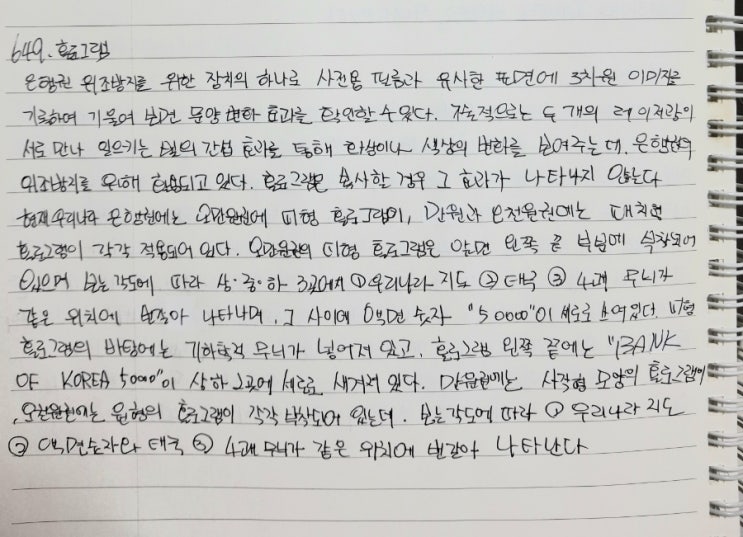 649. 홀로그램
은행권 위조방지를 위한 장치의 하나로 사진용 필름과 유사한 표면에 3차원 이미지를
기록하여 기울여 보면 문양 변화 효과를 확인할 수 있다. 구조적으로는 두 개의 레이저광이
서로 만나 일으키는 빛의 간섭 효과를 통해 화상이나 색상의 변화를 보여주는데, 은행권의
위조방지를 위해 활용되고 있다. 홀로그램은 복사할 경우 그 효과가 나타나지 않는다
현재 우리나라 은행권에는 오만원권에 띠형 홀로그램이, 만원과 오천원권에는 패치형
홀로그램이 각각 적용되어 있다. 오만원권의 띠형 홀로그램은 앞면 왼쪽 끝 부분에 부착되어
있으며 보는 각도에 따라 상·중·하 3곳에서 ① 우리나라 지도 ② 태극 ③ 4괘 무늬가
같은 위치에 번갈아 나타나며, 그 사이에 액면 숫자 "50000"이 세로로 쓰여있다. 띠형
홀로그램의 바탕에는 기하학적 무늬가 넣어져 있고, 홀로그램 왼쪽 끝에는 "BANK
OF KOREA 50000"이 상하 2곳에 세로로 새겨져 있다. 만원권에는 사각형 모양의 홀로그램이
, 오천원권에는 원형의 홀로그램이 각각 부착되어 있는데. 보는 각도에 따라 ① 우리나라 지도
② 액면숫자와 태극 ③ 4괘 무늬가 같은 위치에 번갈아 나타난다